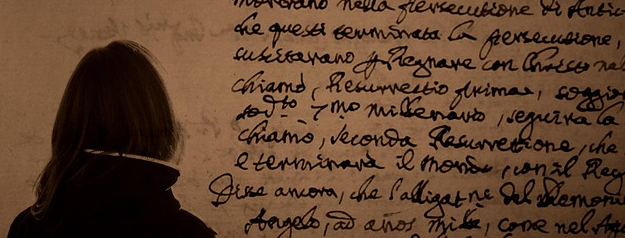 moreranno nella persecutione di Antic
che questi terminata la persecutione,
suscitarano p Regnare con Christo nel
chiamò, Resurrectio prima, soggiu
sod.to 7.mo millenario, seguirà la
chiamò, seconda Resurrettione, che
e terminarà il mondo, con il Reg
Disse ancora, che l'alligat.ne del Demonio
Angelo, ad anos mille, come nel Apo